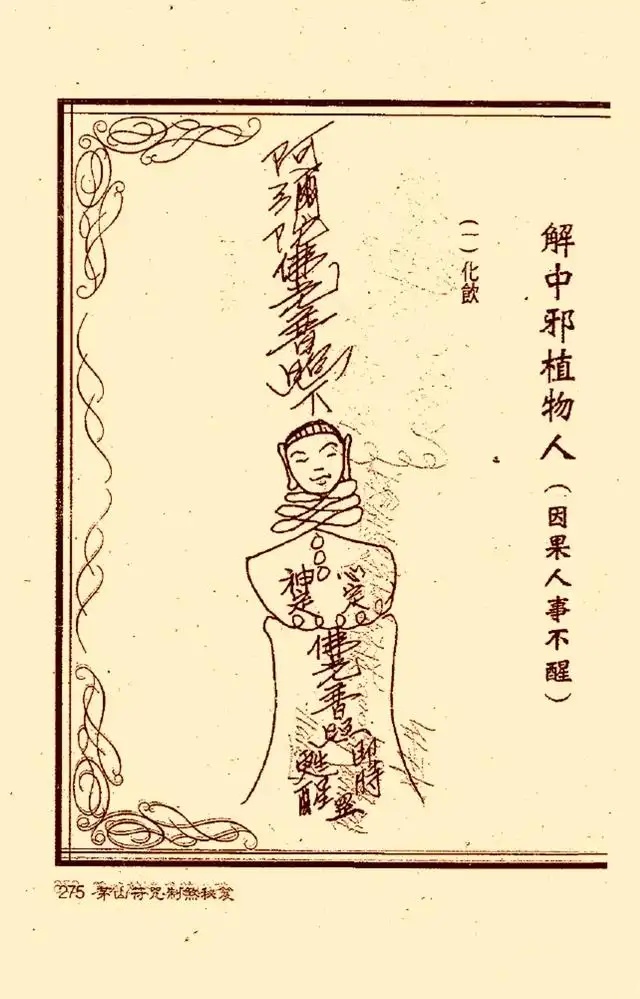 解中邪植物人(因果人事不醒)
(一)化飲
阿彌陀佛光普照下
心定
神定
佛光普照
即時
甦醒
275 茅山符咒制煞秘笈